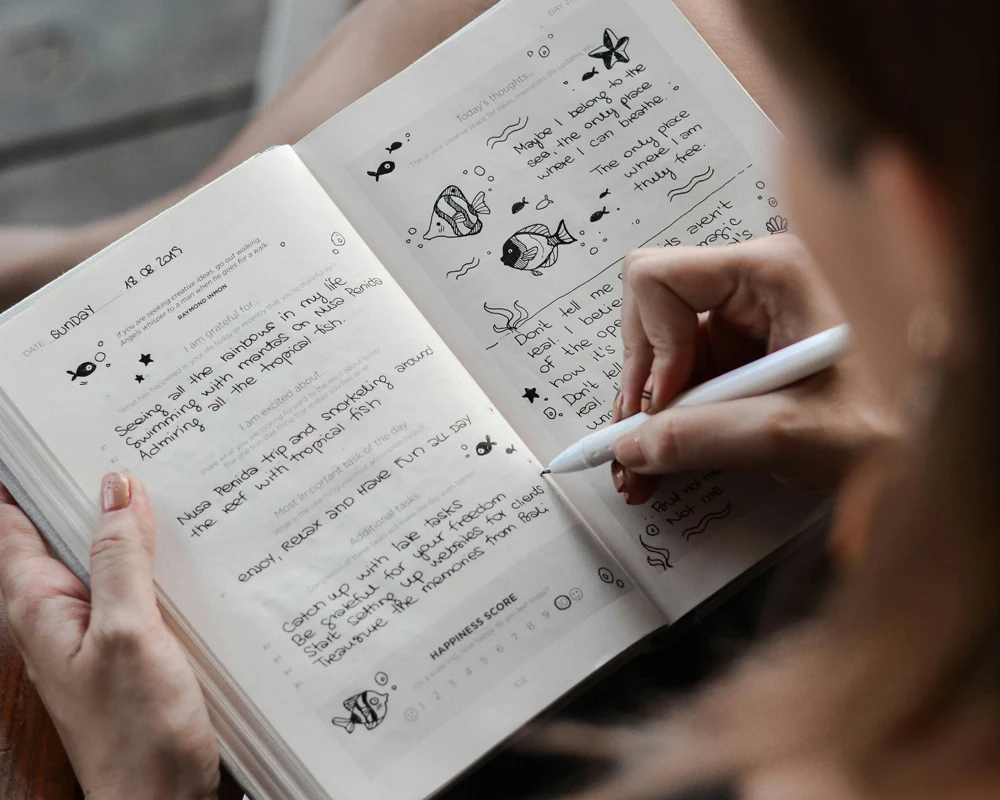 DATE: SUNDAY 18 08 2019
If you are seeking creative ideas, go out walking.
Angels whisper to a man when he goes for a walk.
RAYMOND INMON
I am grateful for...
What has happened in your life today or recently that you're thankful for?
Seeing all the rainbows in my life
Swimming with mantas on Nusa Penida
Admiring all the tropical fish.
I am excited about...
Nusa Penida trip and snorkeling around
the reef with tropical fish
Most important task of the day
enjoy, Relax and Have Fun all DAY
Additional tasks
Catch up with late tasks
Be grateful for your freedom
Start setting up websites for clients
Treasure the memories from Bali
HAPPINESS SCORE
On a scale 1-10, how happy do you feel today?
1 2 3 4 5 6 7 8 9
102
DAY
Today's thoughts...
This is your creative space for ideas, inspiration, life updates, etc.
Maybe I belong to the
sea. the only place
where I can breathe.
The only place
where I am
truly free.
aren't
magic
Don't tell me
real. I believe
of the
how it's
Don't tell
real.
But
Not me.